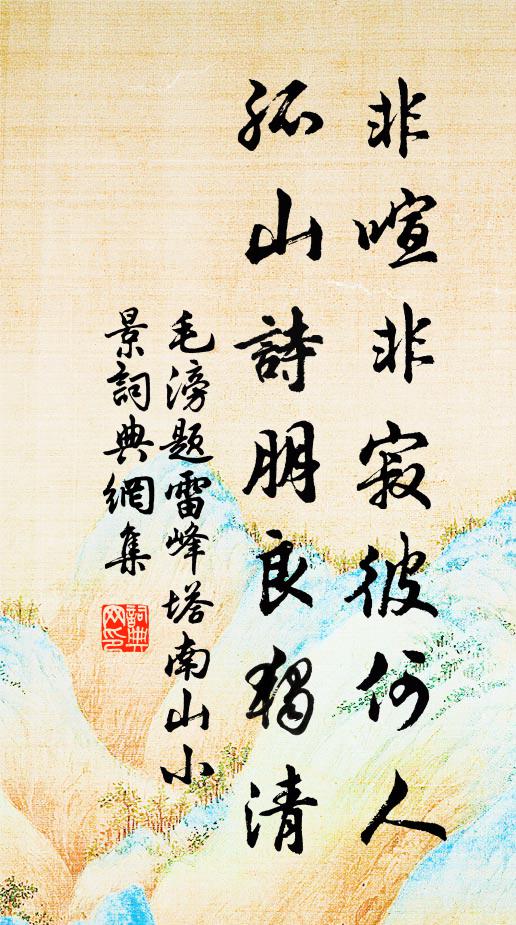 非喧非寂彼何人
孤山詩朋良獨清
毛滂题雷峰塔南山小
景詞典網集
詞典
网印